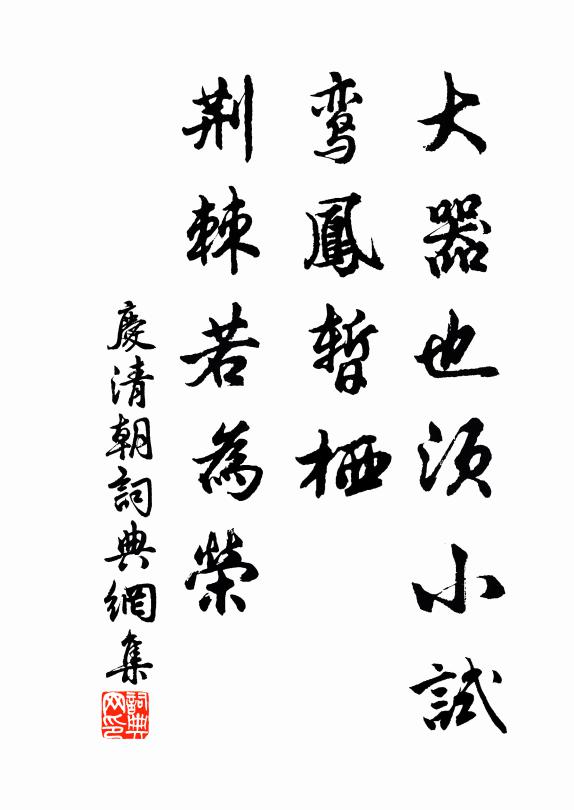 大器也須小試
鸾鳳暫栖
荆棘若為榮
慶清朝詞典網集
詞典网印